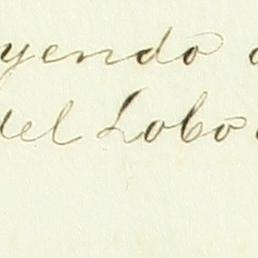 yendo
del Lobo